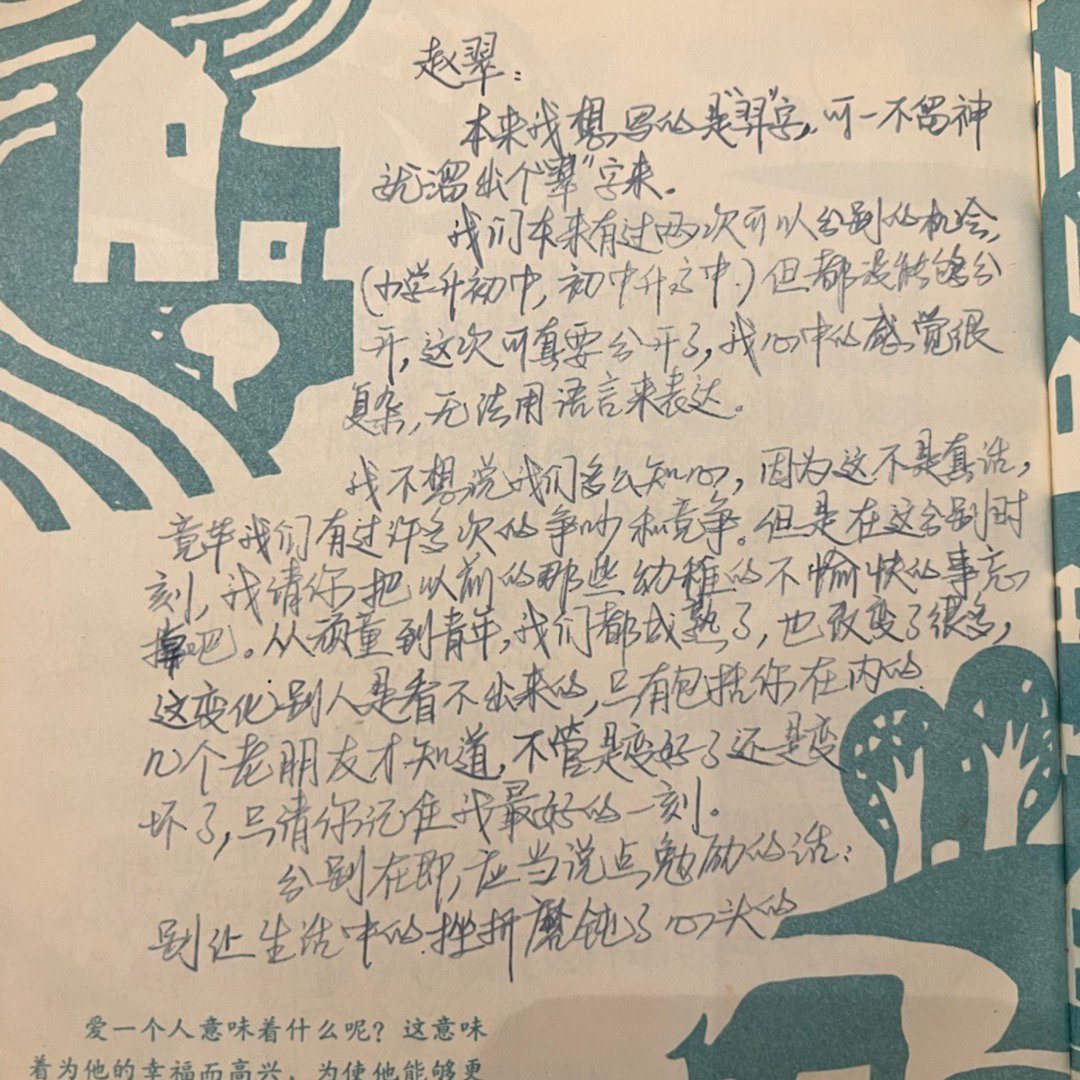 赵翠：
本来我想写的是"羿"字，可一不留神
就溜出个"翠"字来。
我们本来有过两次可以分别的机会，
(小学升初中，初中升高中.)但都没能够分
开，这次可真要分开了，我心中的感觉很
复杂，无法用语言来表达。
我不想说我们多么知心，因为这不是真话，
竟毕我们有过许多次的争吵和竞争。但是在这分别时
刻，我请你把以前的那些幼稚的不愉快的事忘
掉吧。从顽童到青年，我们都成熟了，也改变了很多，
这变化别人是看不出来的，只有包括你在内的
几个老朋友才知道，不管是变好了还是变
坏了，只请你记住我最好的一刻。
分别在即，应当说点勉励的话：
别让生活中的挫折磨钝了心头的
爱一个人意味着什么呢？这意味
着为他的幸福而高兴，为使他能够更